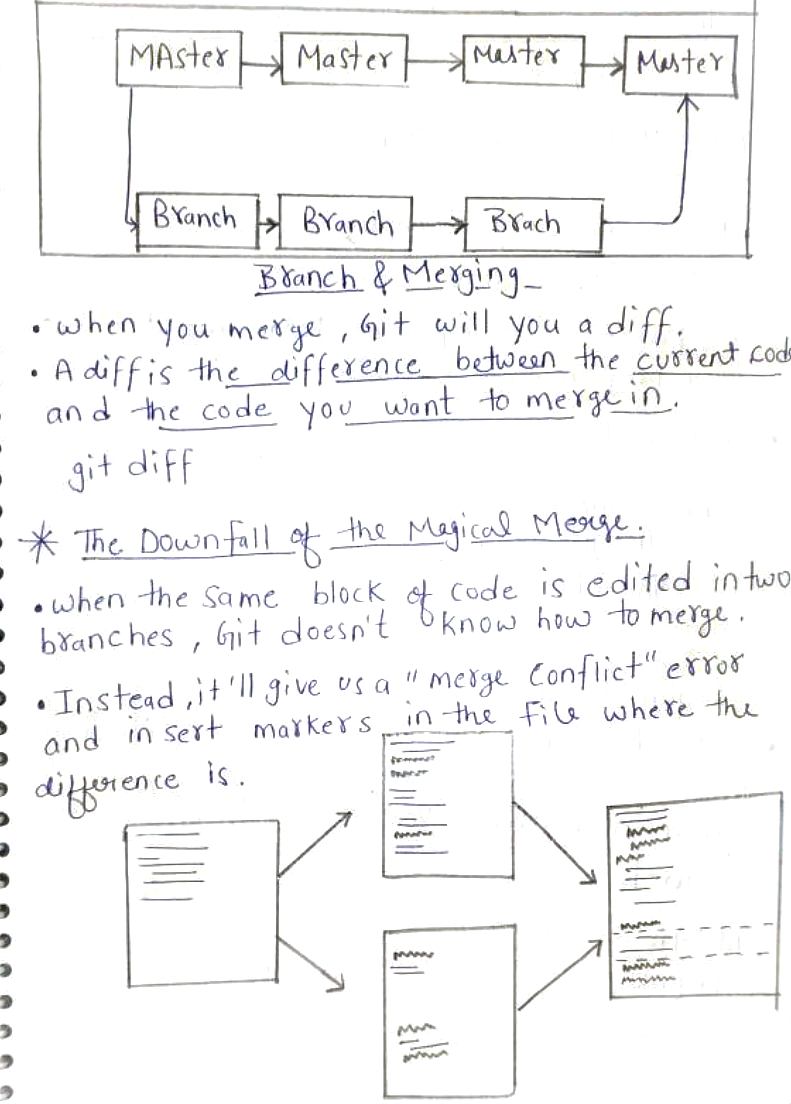 MAster Master Master Master
Branch Branch Brach
Branch & Merging
• when you merge, Git will you a diff.
• A diff is the difference between the current cod
and the code you want to merge in.
git diff
* The Downfall of the Magical Merge.
• when the same block of code is edited in two
branches, Git doesn't know how to merge.
• Instead, it'll give us a "merge conflict" error
and insert markers in the file where the
difference is.